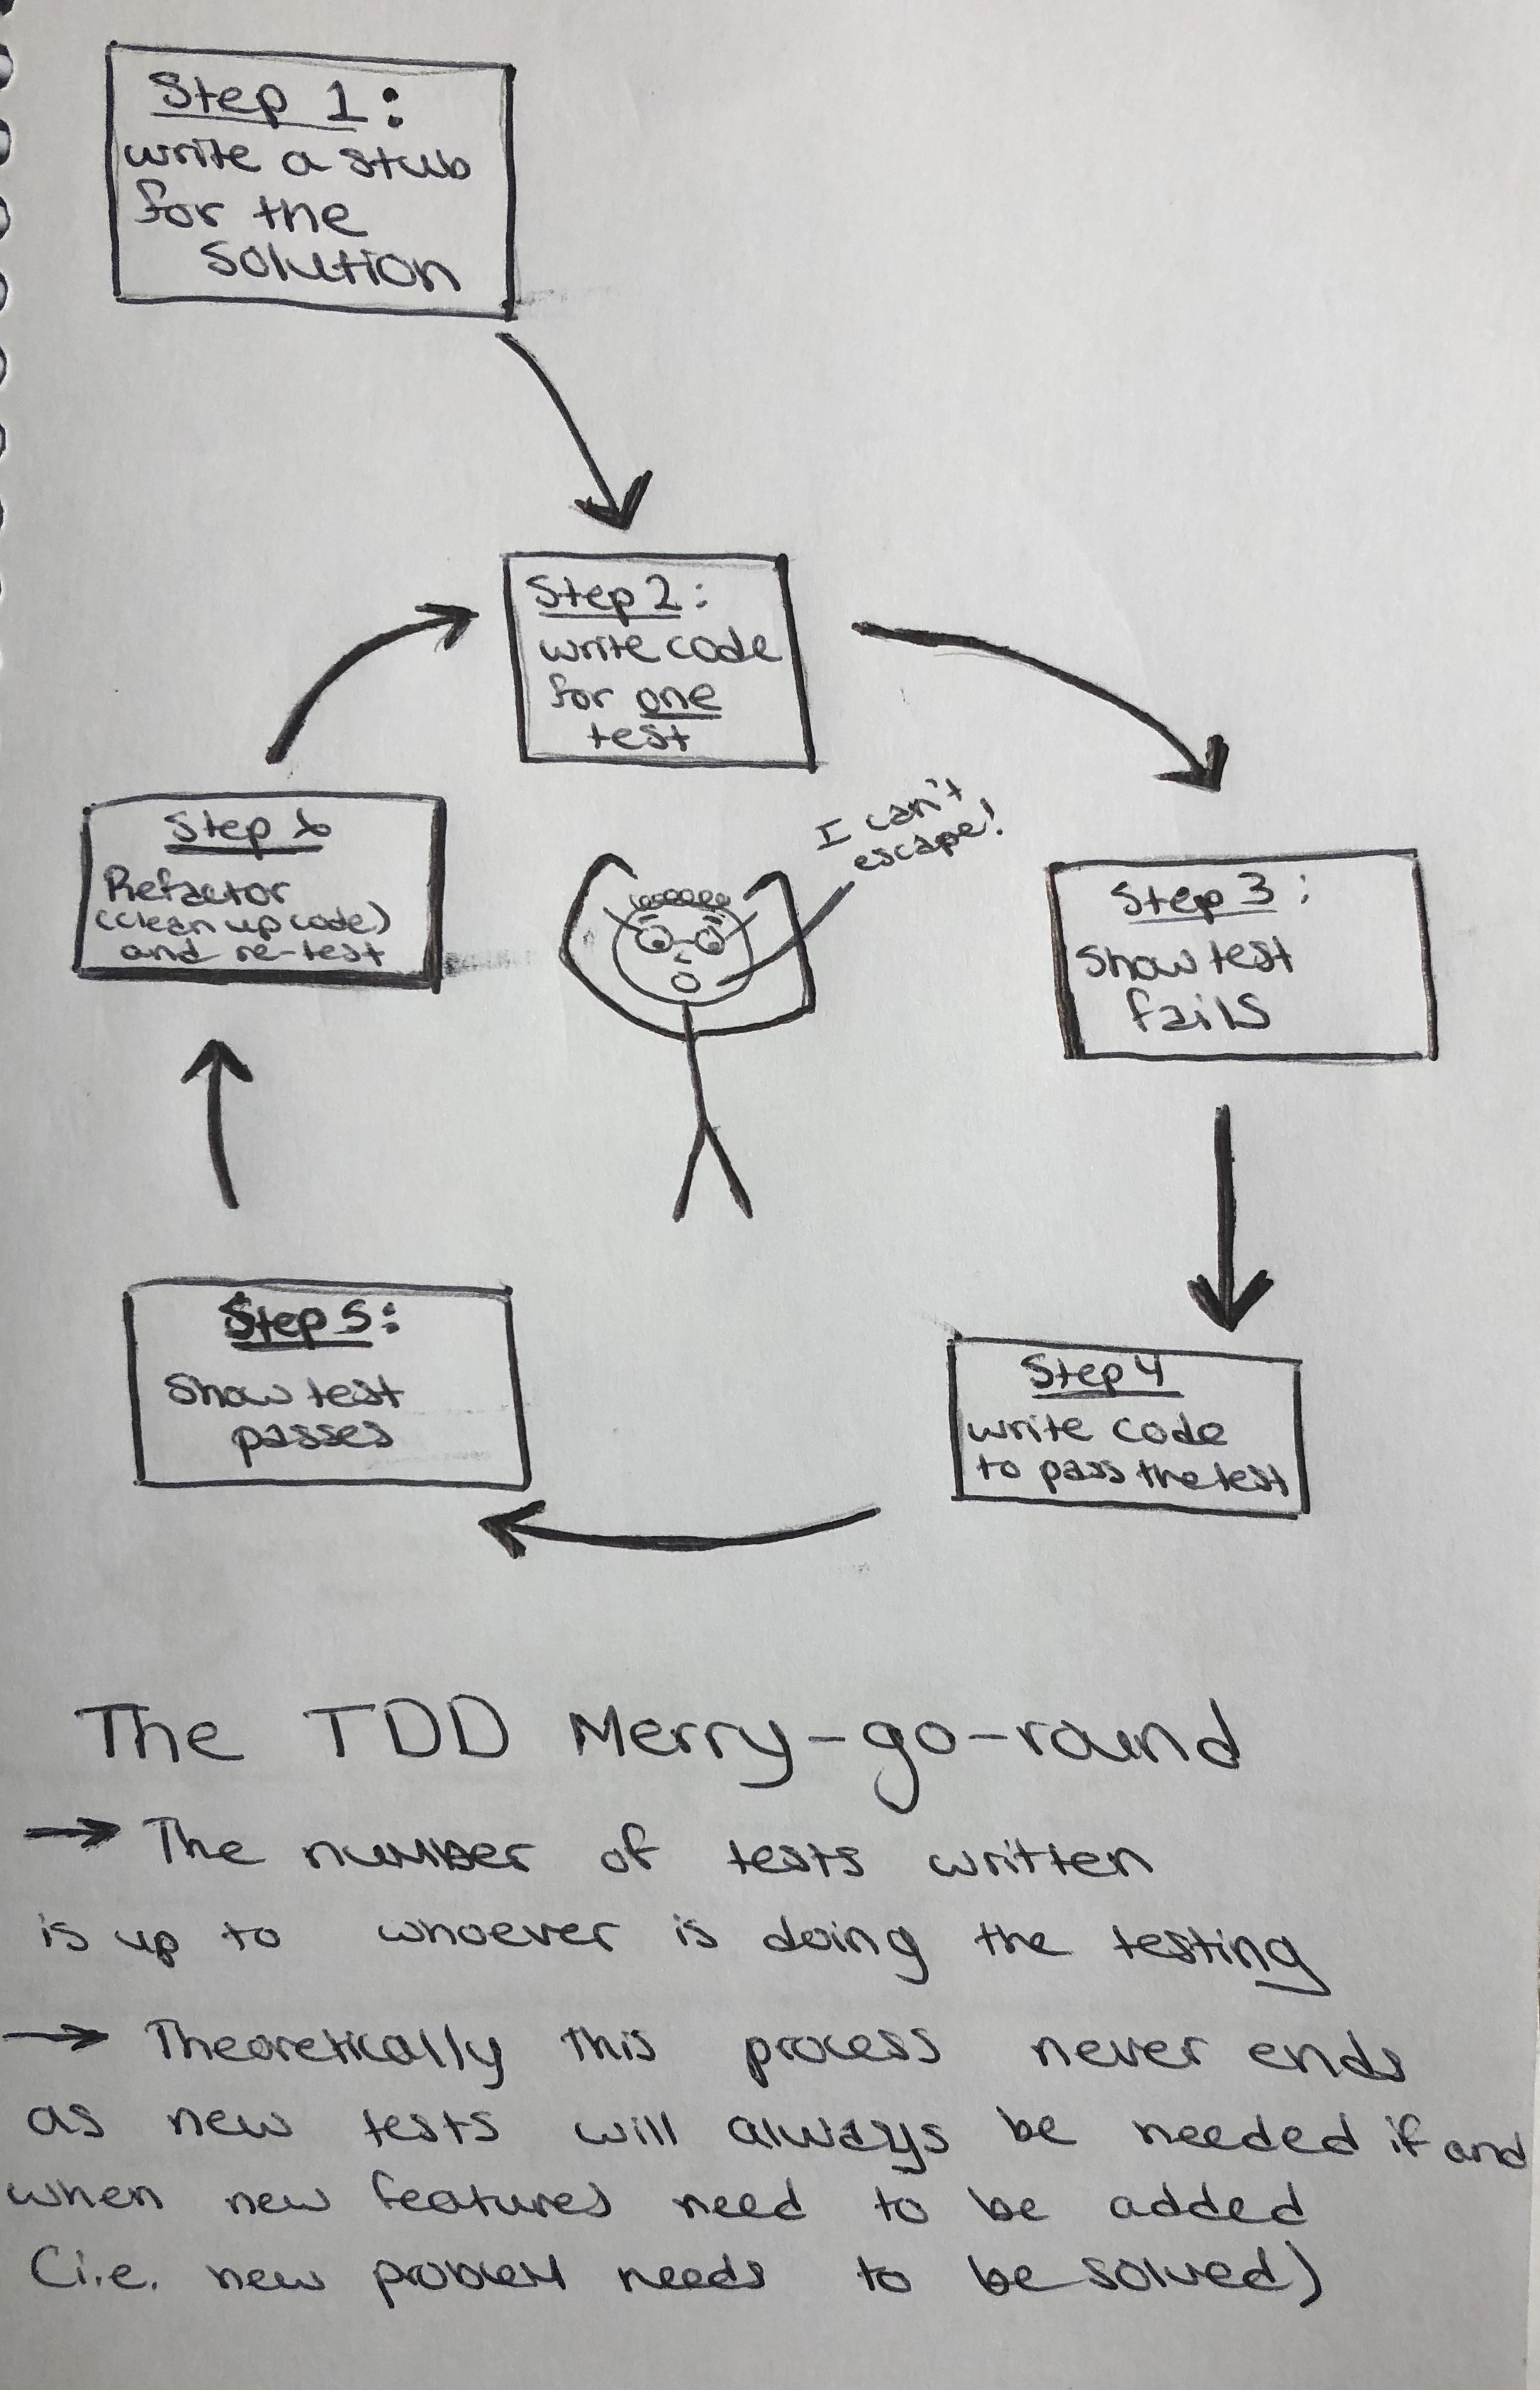 Step 1:
write a stub
for the
solution
Step 2:
write code
for one
test
Step 3:
Show test
fails
Step 4
write code
to pass the test
Step 5:
Show test
passes
Step 6
Refactor
(clean up code)
and re-test
I can't
escape!
The TDD Merry-go-round
→ The number of tests written
is up to whoever is doing the testing
→ Theoretically this process never ends
as new tests will always be needed if and
when new features need to be added
(i.e. new problem needs to be solved)